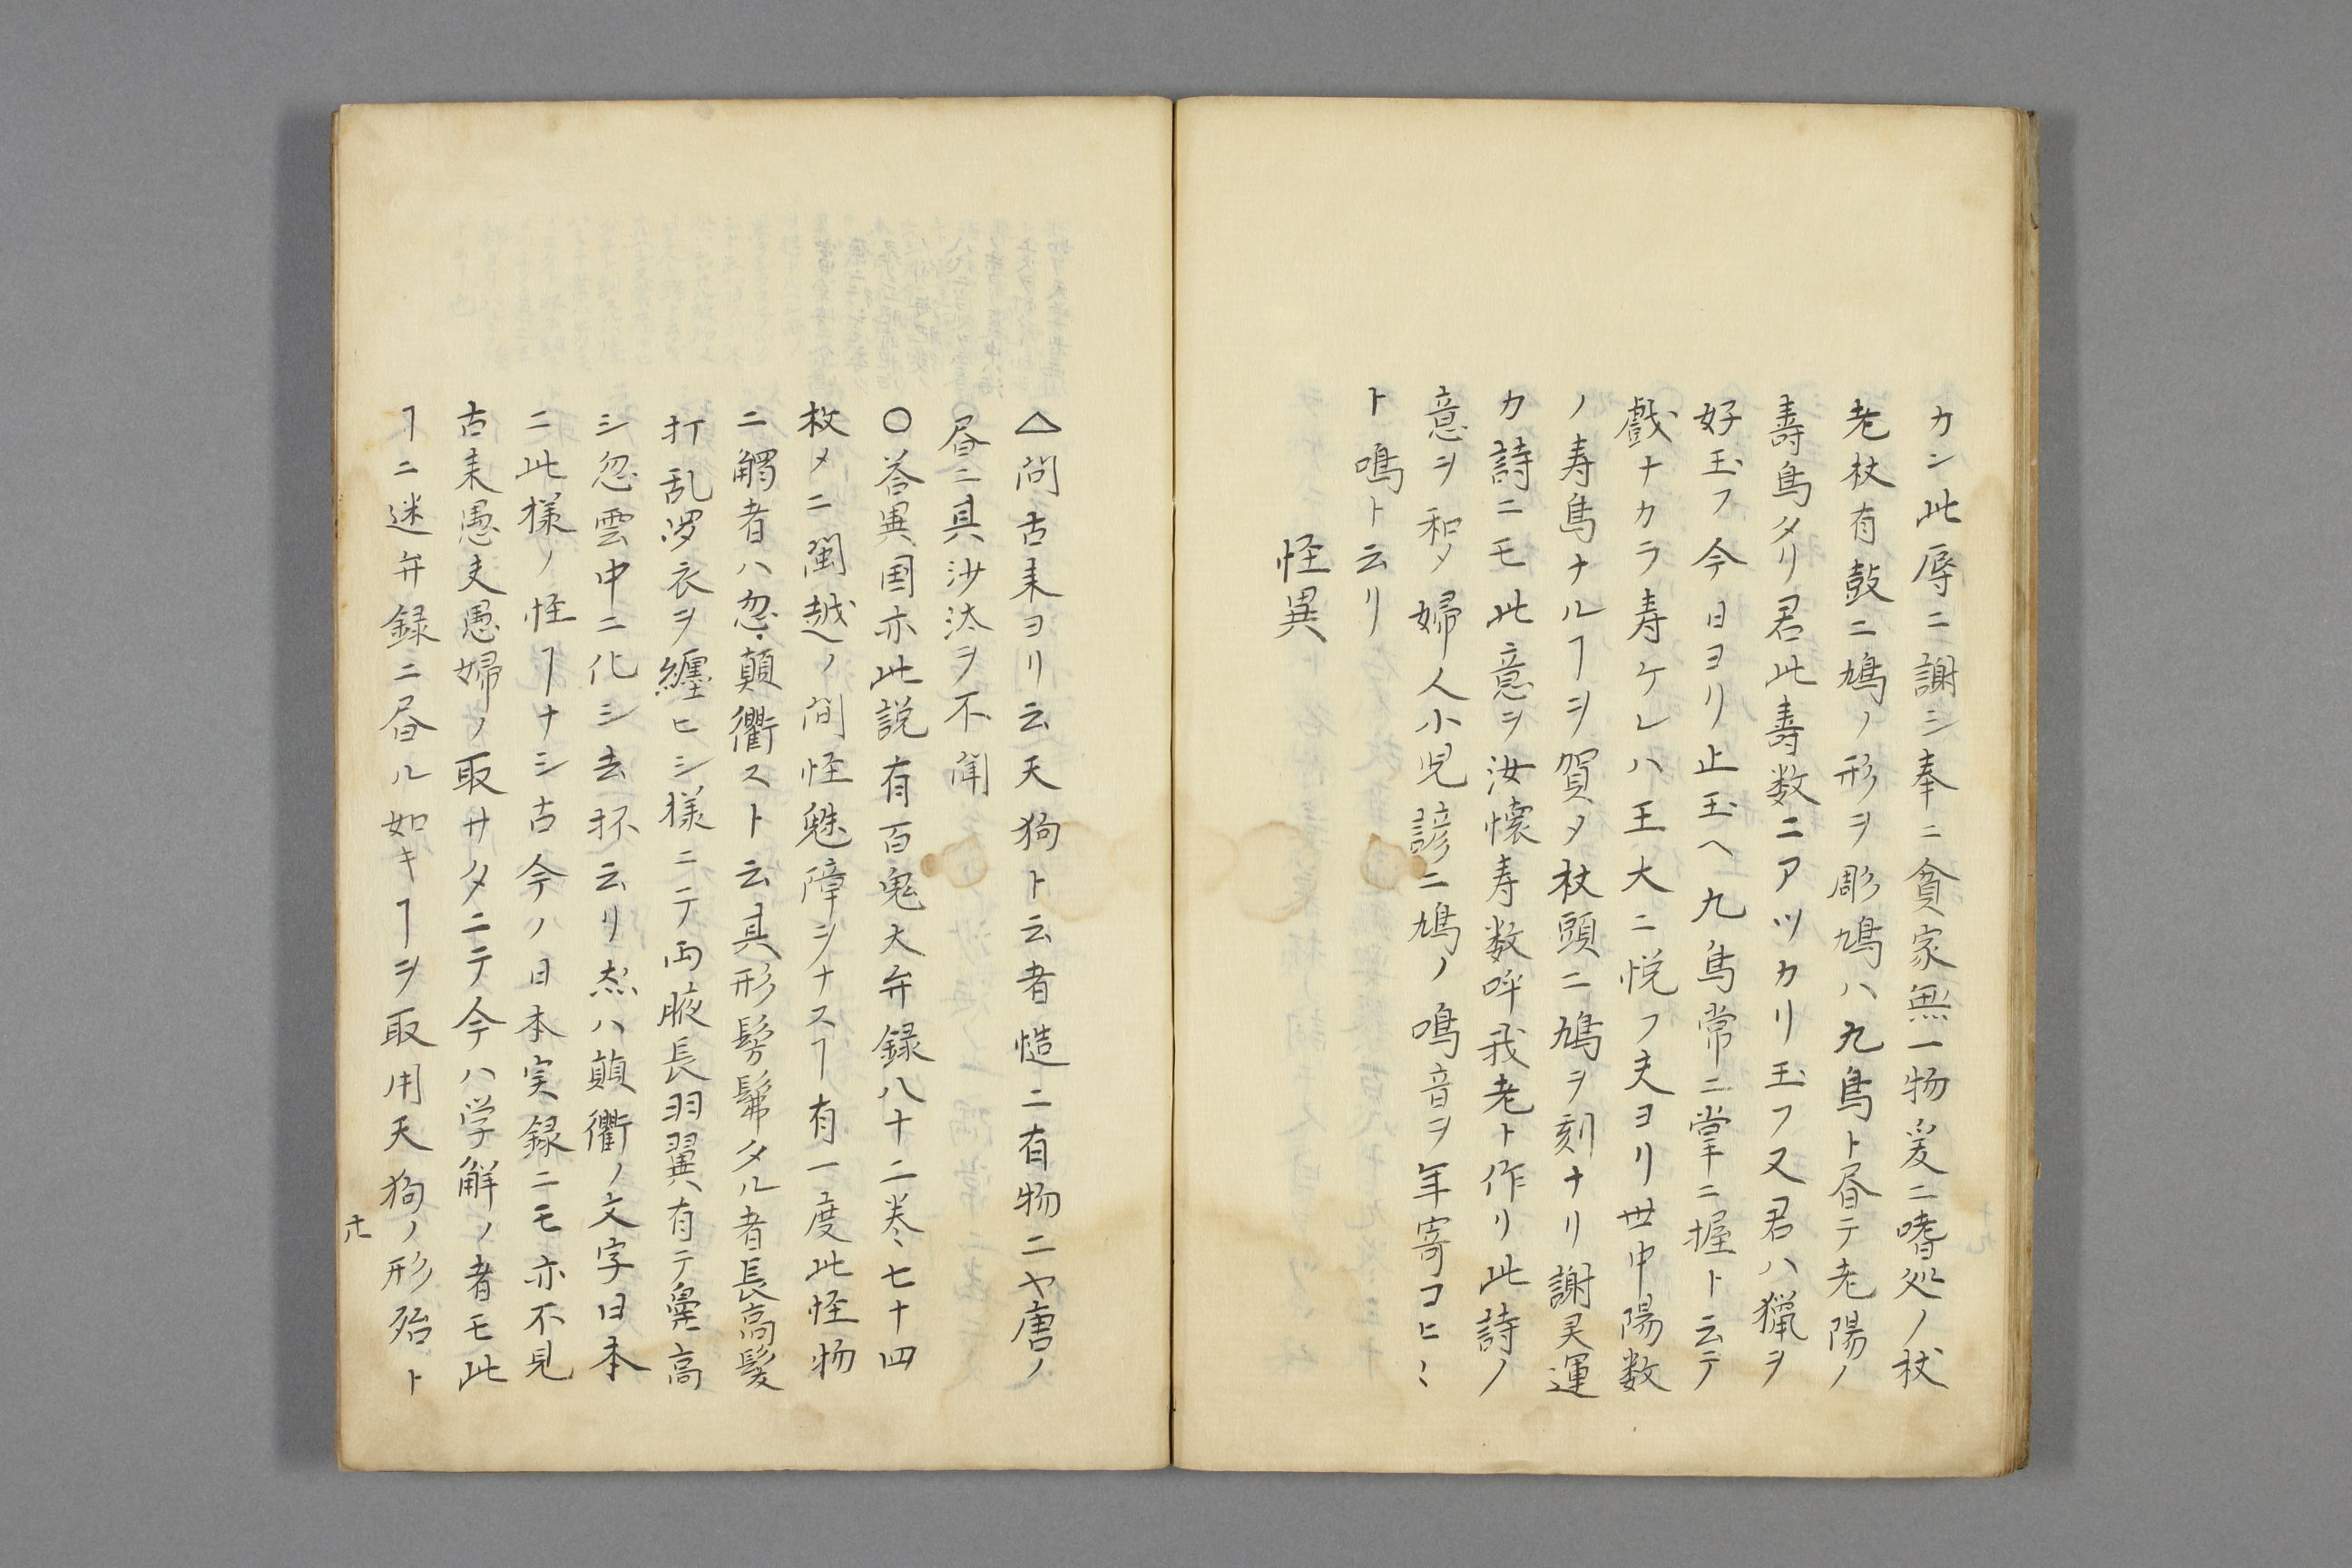 カン此辱ニ謝シ奉ニ貧家無一物爰ニ嗜処ノ杖
老杖有鼓ニ鳩ノ形ヲ彫鳩ハ九鳥ト昏テ老陽ノ
壽鳥タリ君此壽数ニアツカリ玉フ又君ハ猟ヲ
好玉フ今日ヨリ止玉ヘ九鳥常ニ掌ニ握ト云テ
戯ナカラ寿ケレハ王大ニ悦フ夫ヨリ世中陽数
ノ寿鳥ナルヿヲ賀メ杖頭ニ鳩ヲ刻ナリ謝灵運
カ詩ニモ此意ヲ汝懐寿数呼我老ト作リ此詩ノ
意ヲ和メ婦人小児諺ニ鳩ノ鳴音ヲ年寄コヒ〻
ト鳴ト云リ
怪異
△問古来ヨリ云天狗ト云者慥ニ有物ニヤ唐ノ
昏ニ具沙汰ヲ不聞
〇答異国亦此説有百鬼大弁録八十二巻七十四
枚メニ閩越ノ間怪魅障ヲナスヿ有一度此怪物
ニ觸者ハ忽顛衢スト云具形髣髴タル者長高髪
打乱渉衣ヲ纏ヒシ様ニテ両腋長羽翼有テ鼻高
シ忽雲中ニ化シ去抔云リ然ハ顛衢ノ文字日本
ニ此様ノ怪ヿナシ古今ノ日本実録ニモ亦不見
古来愚夫愚婦ノ取サタニテ今ハ学解ノ者モ此
ヿニ迷弁録ニ昏ル如キヿヲ取用天狗ノ形殆ト